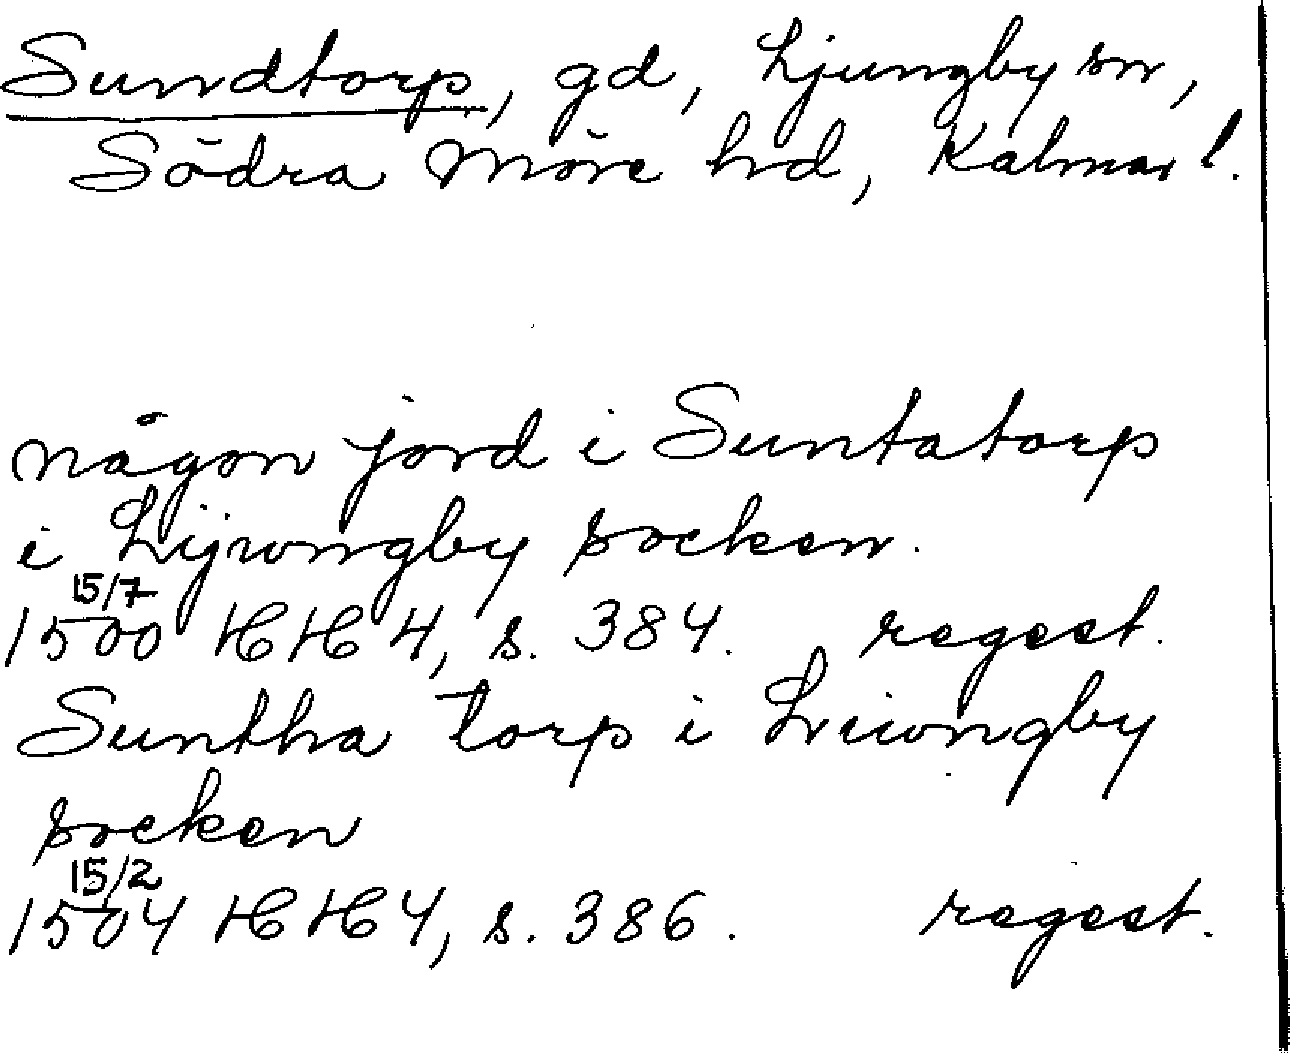 Sundtorp, gd, Ljungby sn,
Södra Möre hd, Kalmar l.
någon jord i Suntatorp
i Lijwngby socken.
15/7
1500 HH 4, s. 384. regest.
Suntha torp i Lviwngby
socken
15/2
1504 HH 4, s. 386. regest.